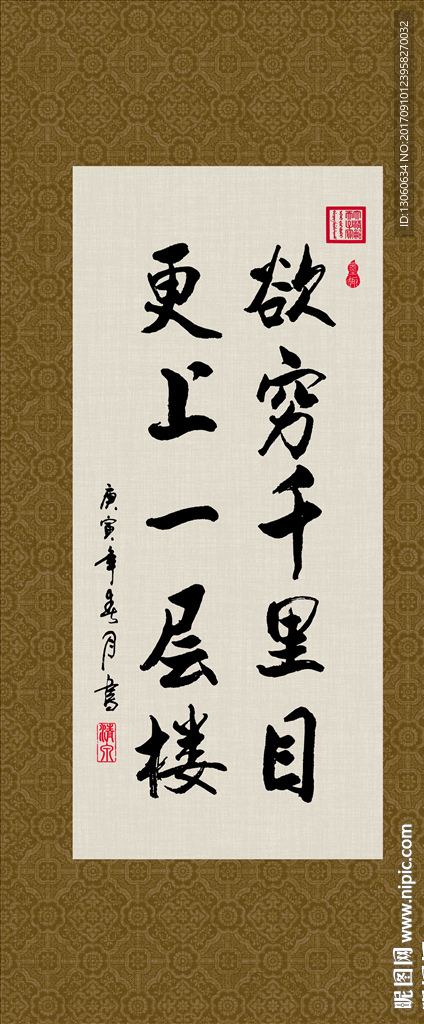 欲穷千里目
更上一层楼
庚寅年春月书
清泉
ID:13060634 NO:20170910123958270032
昵图网 www.nipic.com